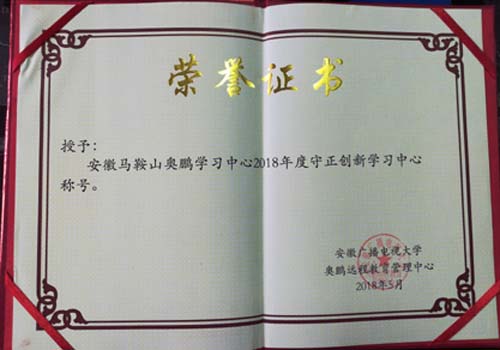 荣誉证书
授予：
安徽马鞍山奥鹏学习中心2018年度守正创新学习中心
称号。
安徽广播电视大学
奥鹏远程教育管理中心
2018年5月